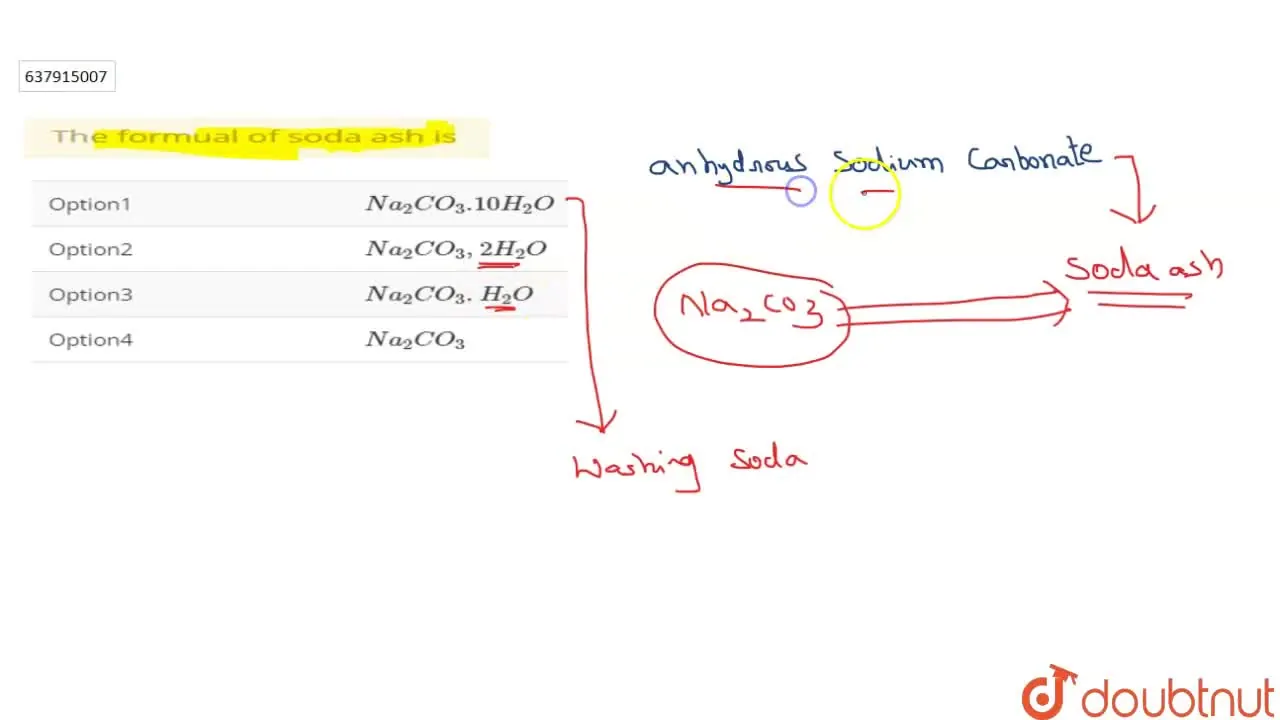 637915007
The formual of soda ash is
Option1 Na₂CO₃.10H₂O
Option2 Na₂CO₃, 2H₂O
Option3 Na₂CO₃. H₂O
Option4 Na₂CO₃
anhydrous Sodium Carbonate
Soda ash
Na₂CO₃
Washing Soda
doubtnut